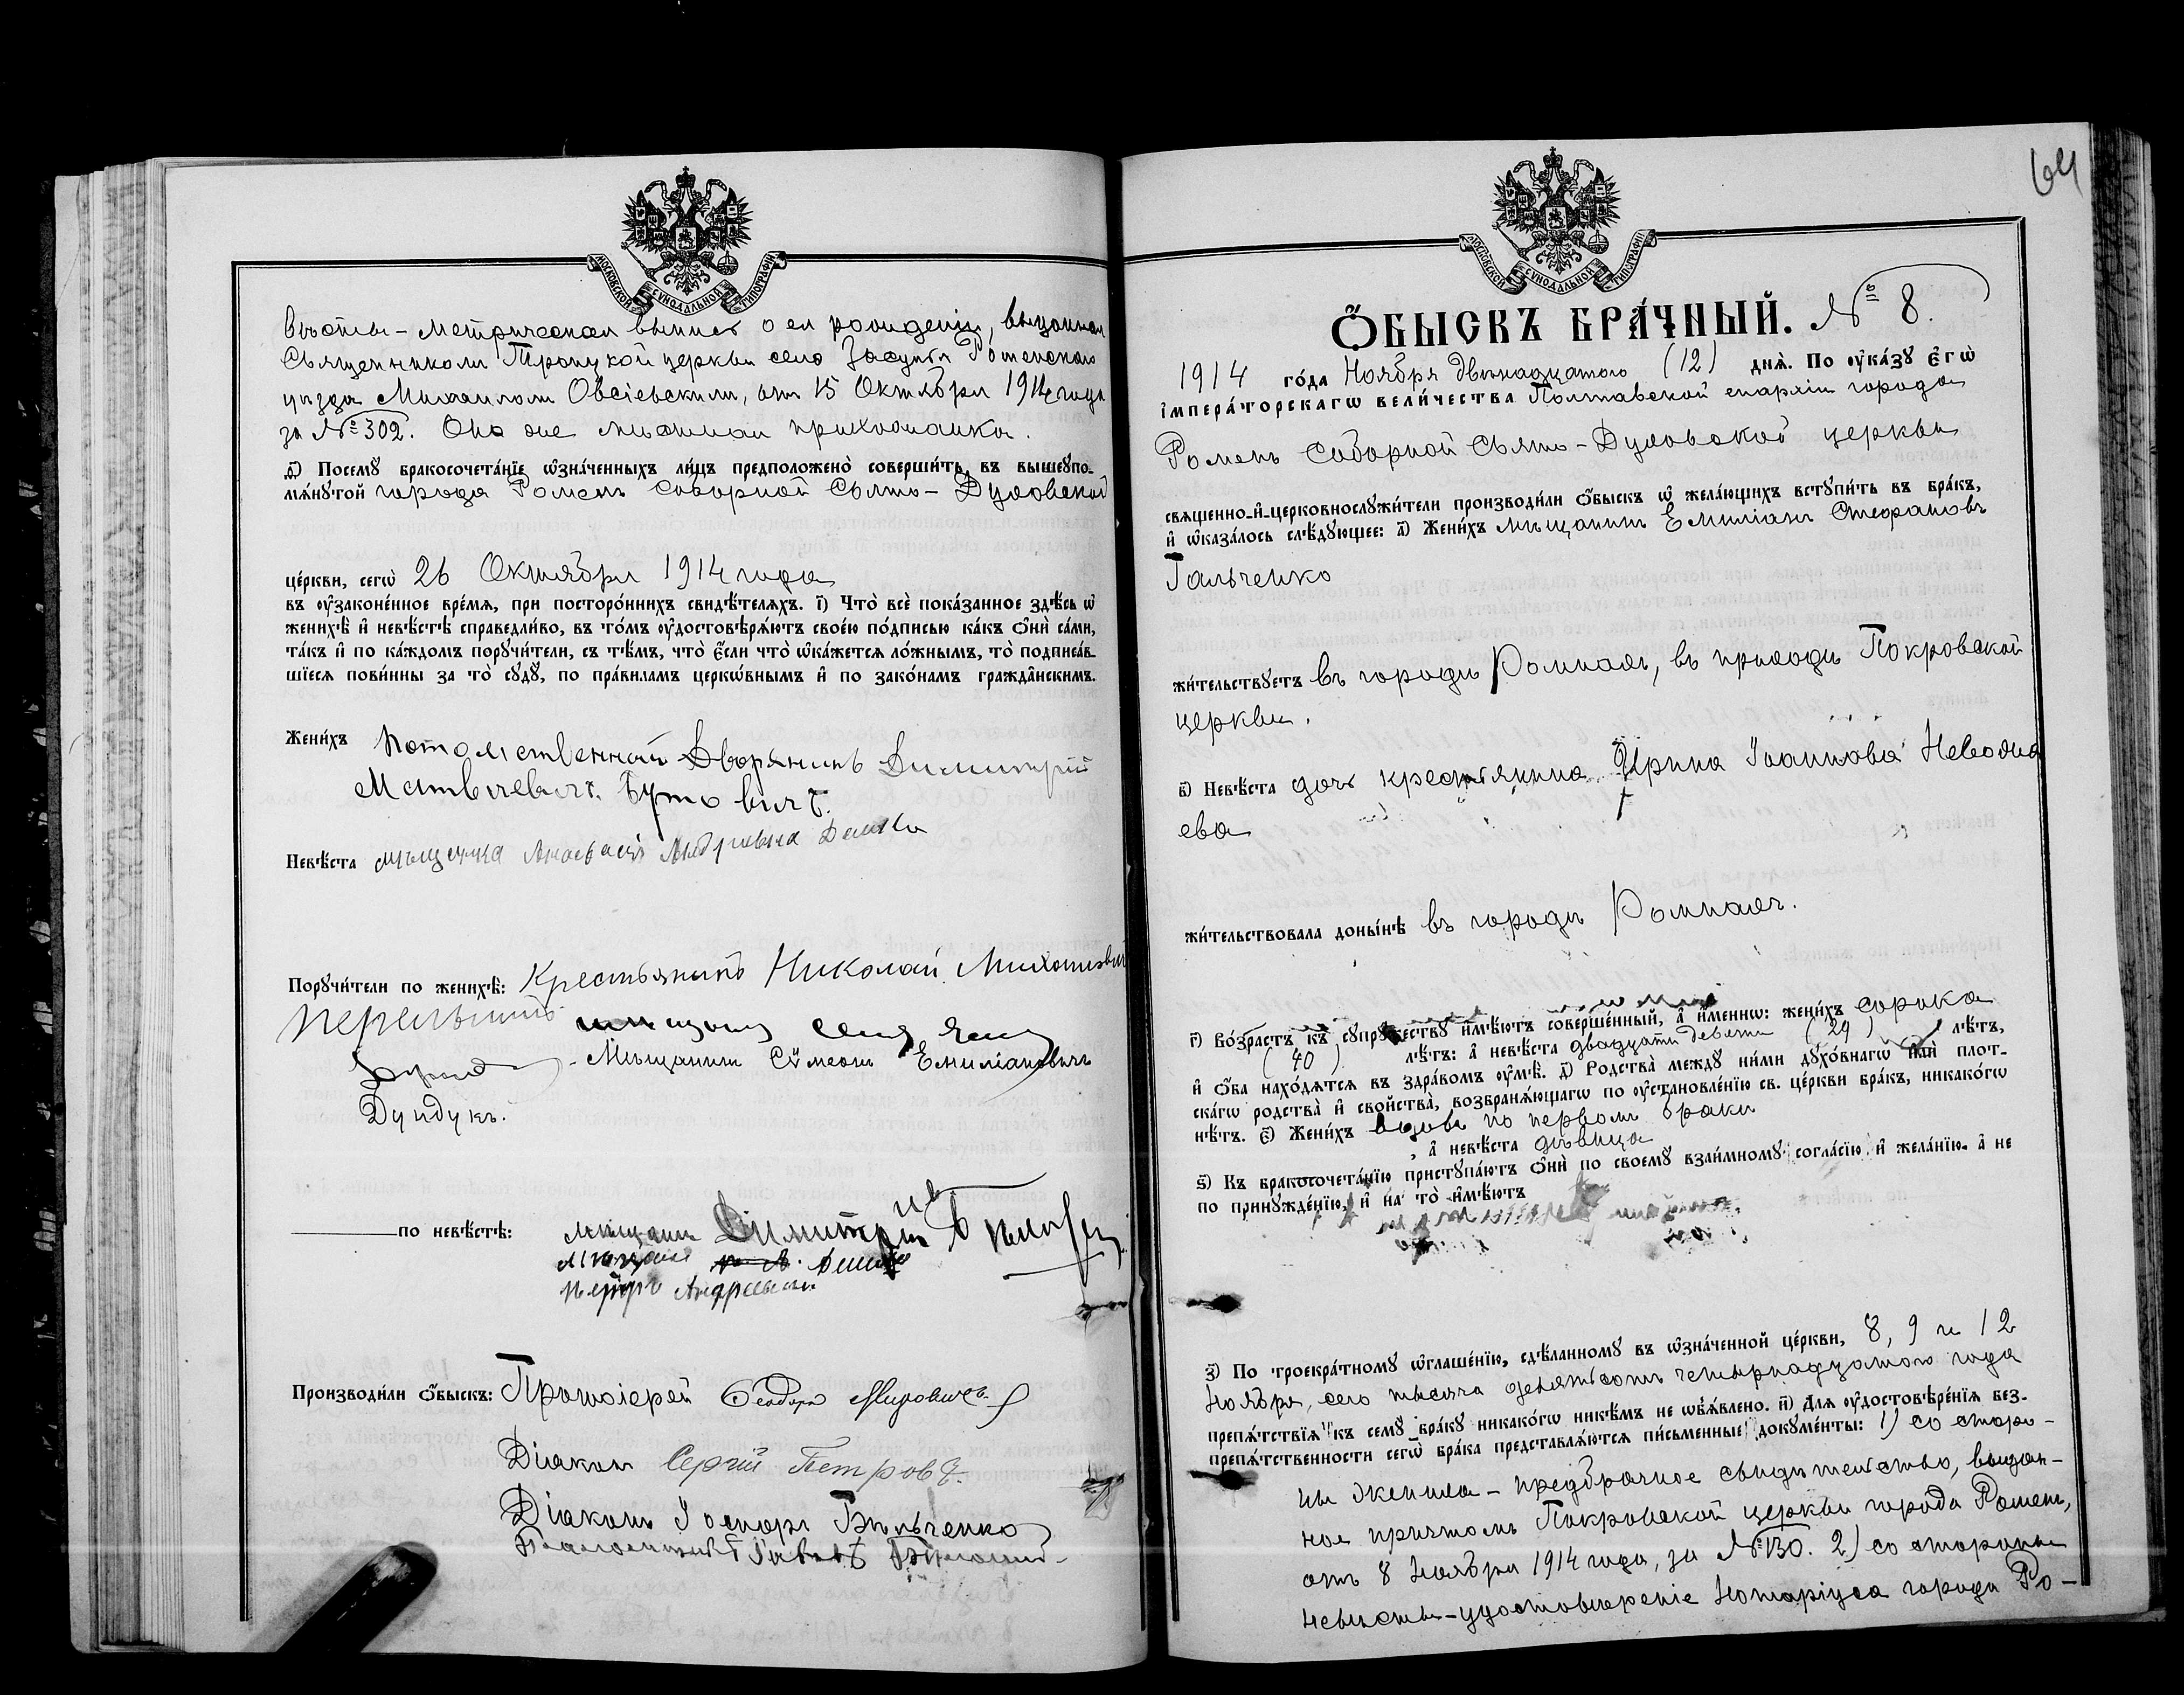 МОСКОВСКОЙ СѴНОДАЛЬНОЙ ТИПОГРАФІИ
вѣсты - метрическая выпись о ея рожденіи, выданная
Священникомъ Троицкой церкви села Засулья Роменскаго
уѣзда Михаиломъ Овсіевскимъ, отъ 15 Октября 1914 года
за № 302. Она же мѣстная прихожанка.
ѳ҃) Посемꙋ бракосочета́нїе ѡ҆зна́ченныхъ ли́цъ предположено̀ соверши́ть въ вышеꙋпо-
мѧ́нꙋтой города Роменъ Соборной Свято-Духовской
це́ркви, сегѡ̀ 26 Октября 1914 года
въ ᲂу҆законе́нное вре́мя, при посторо́ннихъ свидѣ́телѧхъ. і҃) Что̀ всѐ пока́занное здѣ́сь ѡ҆
женихѣ̀ и҆ невѣ́стѣ справедли́во, въ то́мъ ᲂу҆достовѣрѧ́ютъ свое́ю по́дписью ка́къ ѻ҆нѝ са́ми,
та́къ и҆ по ка́ждомъ порꙋчи́тели, съ тѣ́мъ, что̀ є҆́сли что̀ ѡ҆ка́жется ло́жнымъ, то̀ подписа́в-
шїеся пови́нны за то̀ сꙋдꙋ̀, по пра́виламъ церко́внымъ и҆ по зако́намъ гражда́нскимъ.
Жени́хъ Потомственный Дворянинъ Димитрій
Матвѣевичъ Бутовичъ.
Невѣ́ста мѣщанка Анастасія Андреевна
Порꙋчи́тели по женихѣ̀: Крестьянинъ Николай Михайлович
- Мѣщанинъ Сѵмеонъ Емиліановичъ
Дундукъ.
по невѣ́стѣ: Мѣщанинъ Димитрій
Петръ Андреевичъ
Производи́ли ѻ҆́быскъ: Протоіерей Ѳеодоръ
Діаконъ Сергій Петровъ.
Діаконъ Бѣльченко
64
МОСКОВСКОЙ СѴНОДАЛЬНОЙ ТИПОГРАФІИ
Ѻ҆́БЫСКЪ БРА́ЧНЫЙ. № 8.
1914 го́да Ноября двѣнадцатаго (12) днѧ̀. По ᲂу҆ка́зꙋ є҆гѡ̀
і҆мпера́торскагѡ вели́чества Полтавской епархіи города
Роменъ Соборной Свято-Духовской церкви
свѧщенно-и҆-церковнослꙋжи́тели производи́ли ѻ҆́быскъ ѡ҆ жела́ющихъ встꙋпи́ть въ бра́къ,
и҆ ѡ҆каза́лось слѣ́дꙋющее: а҃) Жени́хъ мѣщанинъ Емиліанъ Стефановъ
Гальченко
жи́тельствꙋетъ въ городѣ Ромнахъ, въ приходѣ Покровской
церкви.
в҃) Невѣ́ста дочь крестьянина Ирина Іоаннова
ева
жи́тельствовала доны́нѣ въ городѣ Ромнахъ.
г҃) Во́зрастъ къ сꙋпрꙋ́жествꙋ и҆мѣ́ютъ соверше́нный, а҆ и҆́менно: жени́хъ сорока
(40) лѣ́тъ: а҆ невѣ́ста двадцати девяти (29) лѣ́тъ,
и҆ ѻ҆́ба нахо́дѧтся въ здра́вомъ ᲂу҆мѣ̀. д҃) Родства̀ междꙋ ни́ми дꙋхо́внагѡ и҆лѝ плот-
ска́гѡ родства̀ и҆ свойства̀, возбранѧ́ющагѡ по ᲂу҆становле́нїю св. це́ркви бра́къ, никако́гѡ
нѣ́тъ. є҃) Жени́хъ вдовъ по первомъ бракѣ
, а҆ невѣ́ста дѣвица
ѕ҃) Къ бракосочета́нїю пристꙋпа́ютъ ѻ҆нѝ по своемꙋ̀ взаи́мномꙋ согла́сїю и҆ жела́нїю. а҆ не
по принꙋжде́нїю, и҆ на то̀ и҆мѣ́ютъ
з҃) По троекра́тномꙋ ѡ҆глаше́нїю, сдѣ́ланномꙋ въ ѡ҆зна́ченной це́ркви, 8, 9 и 12
Ноября, сего тысяча девятьсотъ четырнадцатаго года
препѧ́тствїѧ къ семꙋ̀ бра́кꙋ никако́гѡ никѣ́мъ не ѡ҆б̾ѧ́влено. и҃) Длѧ̀ ᲂу҆достовѣре́нїѧ без-
препѧ́тственности сегѡ̀ бра́ка представлѧ́ются пи́сьменные докꙋме́нты: 1) со сторо-
ны жениха - предбрачное свидѣтельство, выдан-
ное причтомъ Покровской церкви города Роменъ,
отъ 8 Ноября 1914 года, за № 130. 2) со стороны
невѣсты - удостовѣреніе Нотаріуса города Ро-